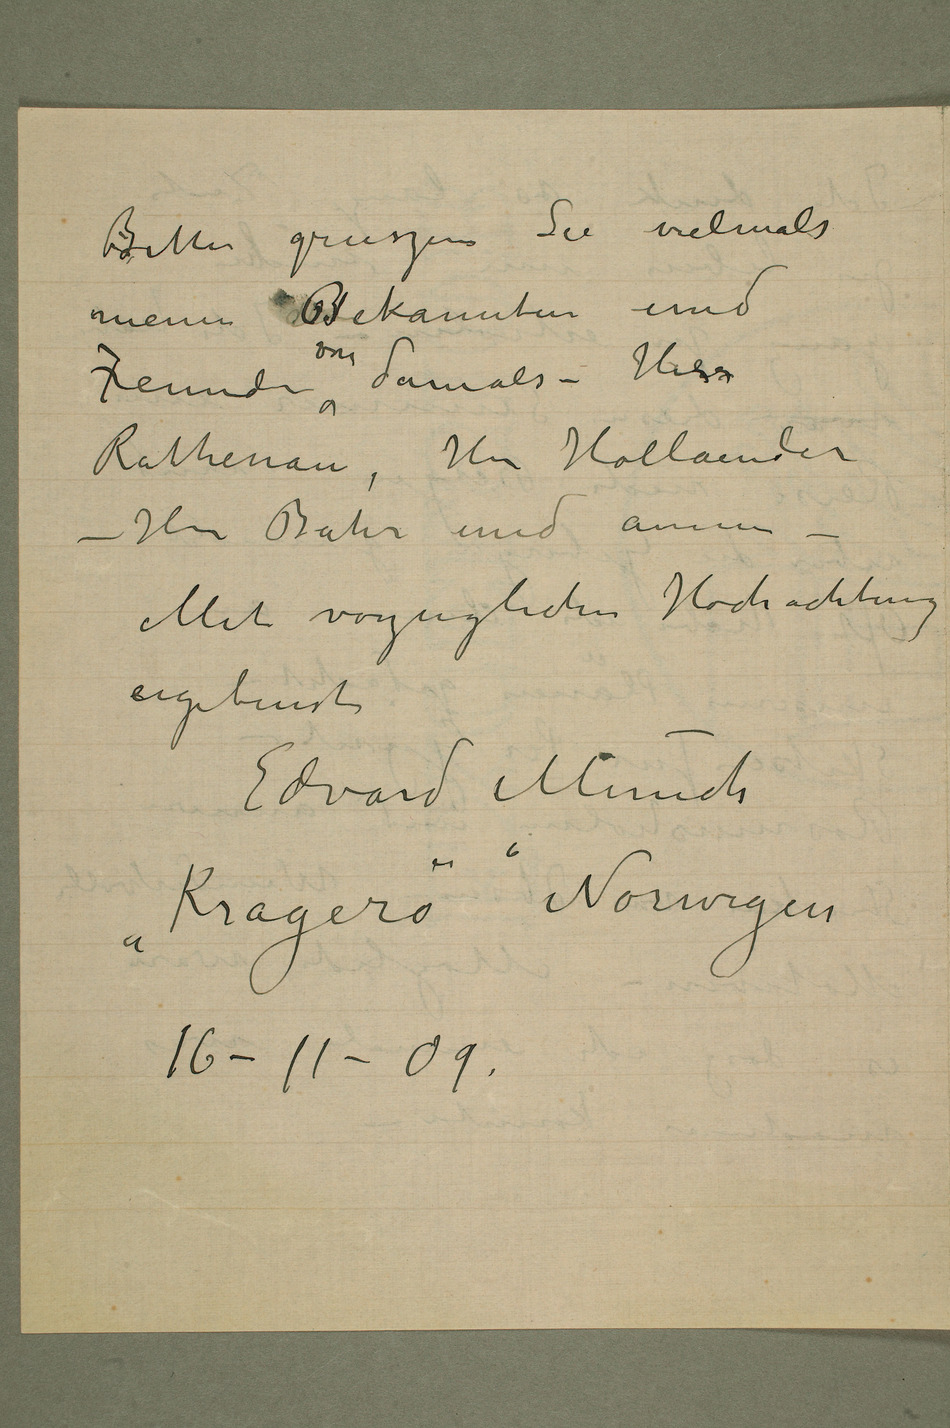 Bitte grueszen Sie vielmals
meine Bekannten und
Freunde von damals – Herr
Rathenau, Herr Hollaender
– Herr Bahr und annen –
Mit vorzuglichen Hochachtung
ergebenst
Edvard Munch
„Kragerö“ Norwegen
16 – 11 – 09.